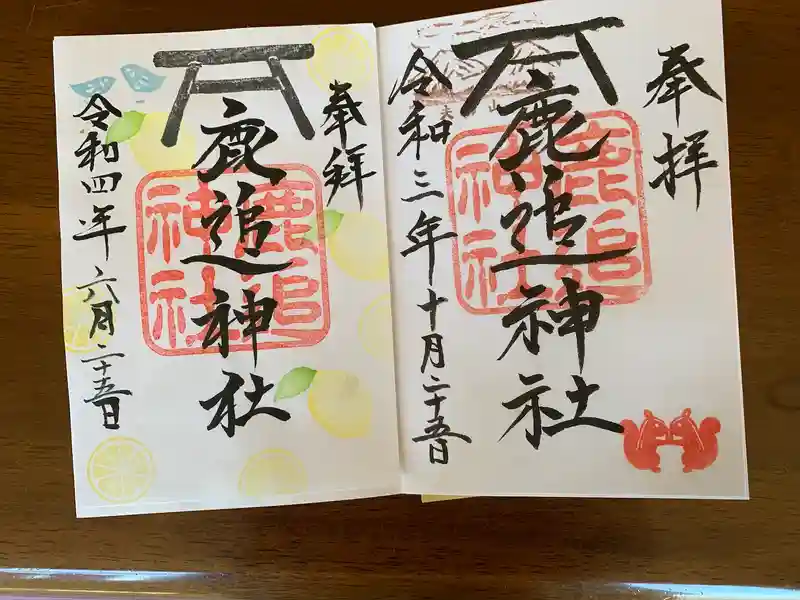 奉拝
鹿追神社
鹿追神社
令和四年六月二十五日
奉拝
鹿追神社
鹿追神社
令和三年十月二十五日